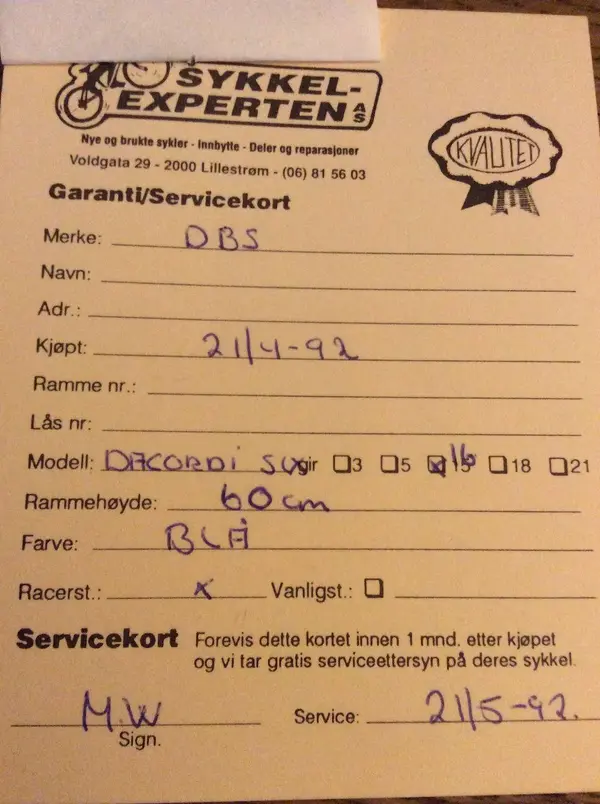 SYKKEL-
EXPERTEN AS
Nye og brukte sykler - Innbytte - Deler og reparasjoner
Voldgata 29 - 2000 Lillestrøm - (06) 81 56 03
KVALITET
Garanti/Servicekort
Merke: DBS
Navn:
Adr.:
Kjøpt: 21/4-92
Ramme nr.:
Lås nr:
Modell: DECORDI SLX gir 3 5 15 16 18 21
Rammehøyde: 60 cm
Farve: BLÅ
Racerst.: x Vanligst.:
Servicekort Forevis dette kortet innen 1 mnd. etter kjøpet
og vi tar gratis serviceettersyn på deres sykkel.
M.W Service: 21/5-92.
Sign.